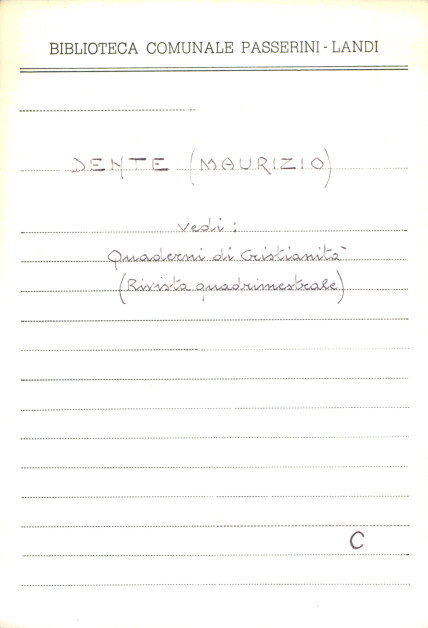 BIBLIOTECA COMUNALE PASSERINI - LANDI
DENTE (MAURIZIO)
Vedi:
Quaderni di Cristianità
(Rivista quadrimestrale)
C